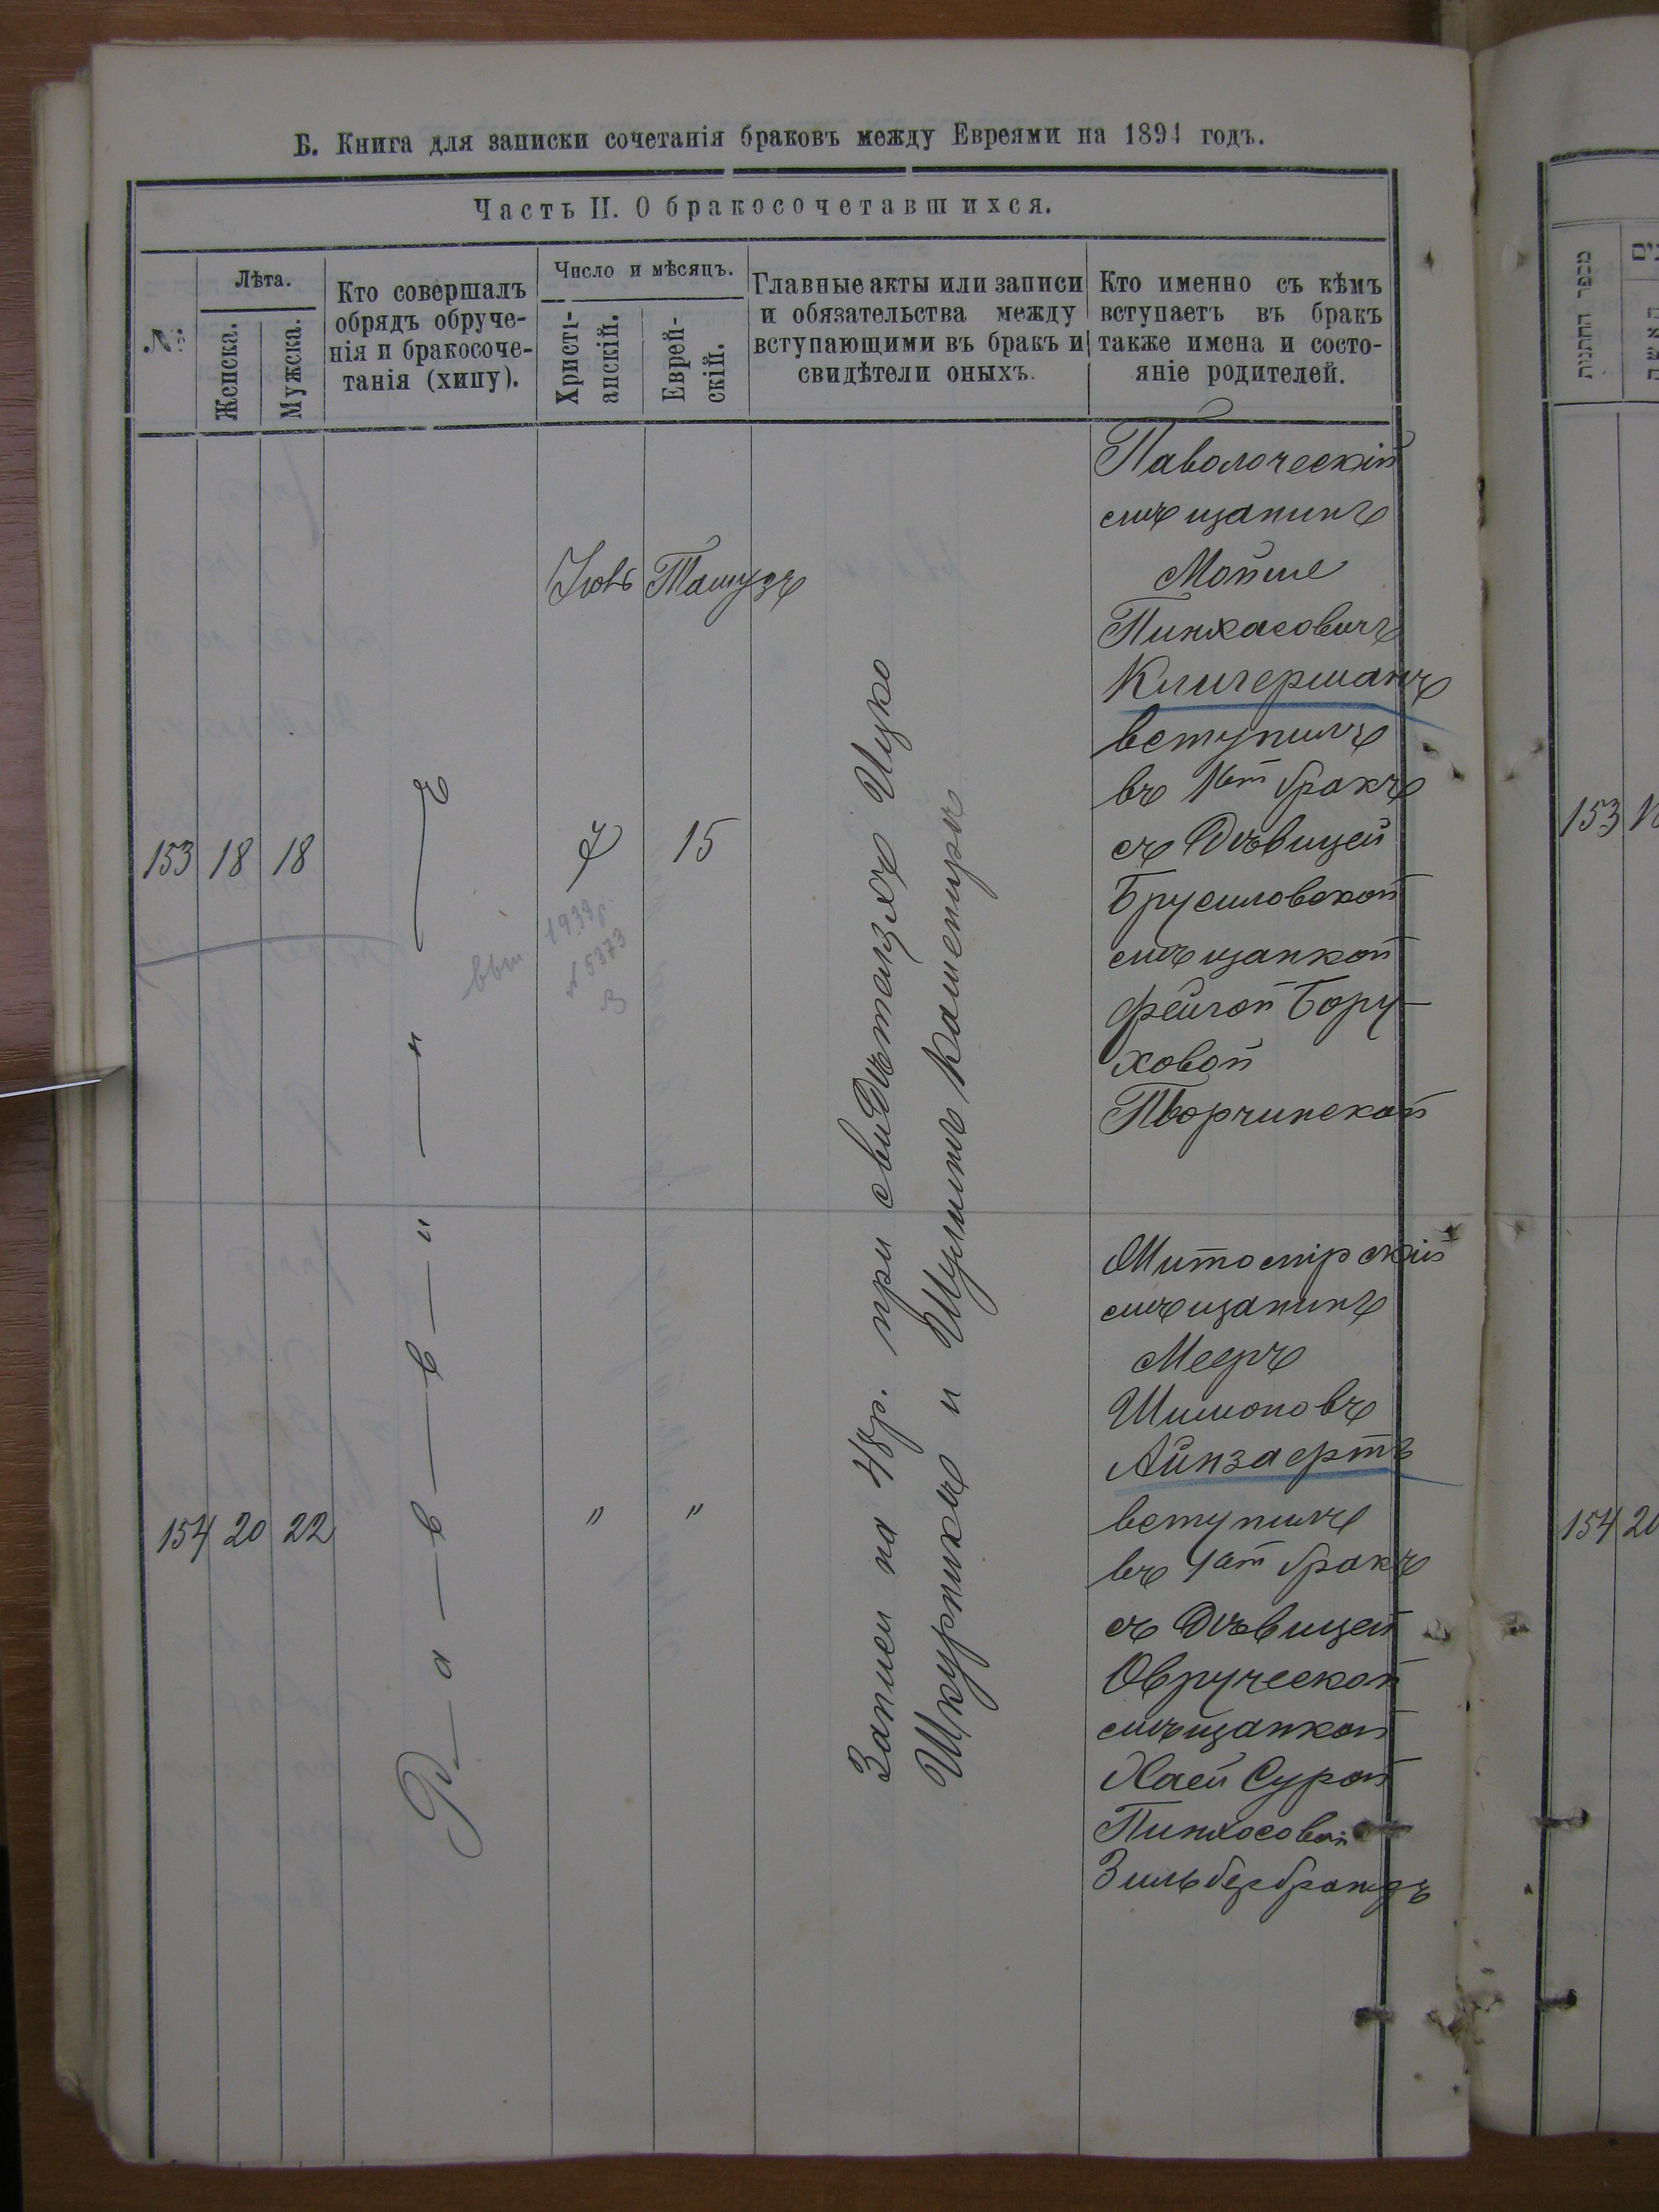 Б. Книга для записки сочетанія браковъ между Евреями на 1894 годъ.
Часть II. О бракосочетавшихся.
№
Лѣта.
Женска.
Мужска.
Кто совершалъ
обрядъ обруче-
нія и бракосоче-
танія (хипу).
Число и мѣсяцъ.
Христі-
анскій.
Еврей-
скій.
Главные акты или записи
и обязательства между
вступающими въ бракъ и
свидѣтели оныхъ.
Кто именно съ кѣмъ
вступаетъ въ бракъ
также имена и состо-
яніе родителей.
153 18 18
Р—а—в—в—и—н—ъ
Іюль
7
Тамузъ
15
1933 р.
№ 5373
Записи на 48 р. при свидѣтеляхъ Ицко
Шкурникъ и Шулимъ Камениръ
Паволоческій
мѣщанинъ
Мойше
Пинхасовичъ
Клигерманъ
вступилъ
въ 1ый бракъ
съ Дѣвицей
Брусиловской
мѣщанкой
Фейгой Бору-
ховой
Творчинской
154 20 22
" "
Житомірскій
мѣщанинъ
Мееръ
Шимоновъ
Айнзаертъ
вступилъ
въ 1ый бракъ
съ Дѣвицей
Овручской
мѣщанкой
Хаей Сурой
Пинхосовой
Зильбербрандъ
מספר החתונות
153
154 20